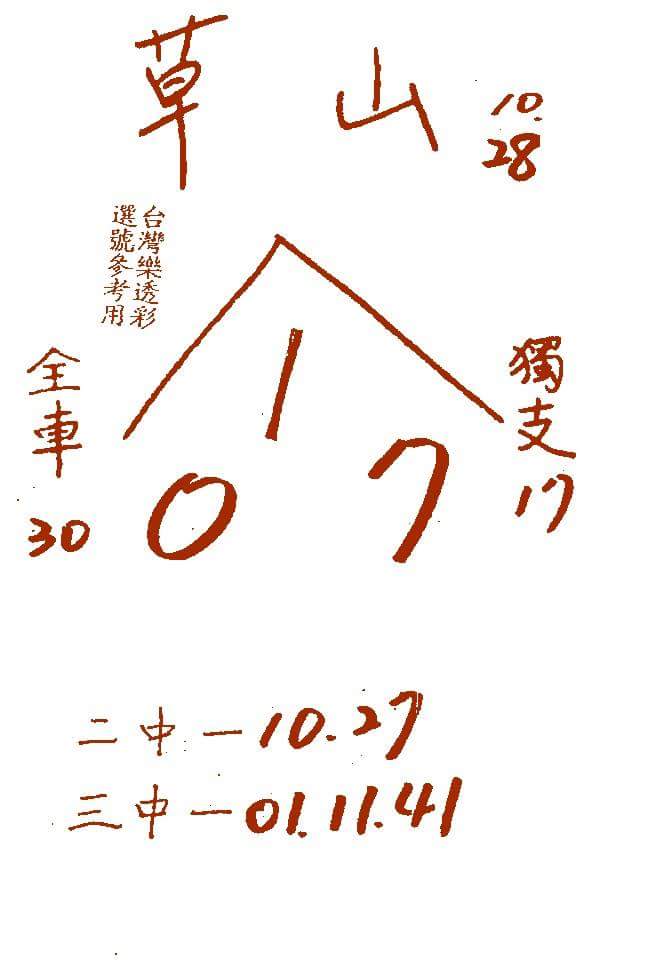 草山
10.
28
台灣樂透彩
選號參考用
全車
30
1
0 7
獨支
17
二中一10.27
三中一01.11.41